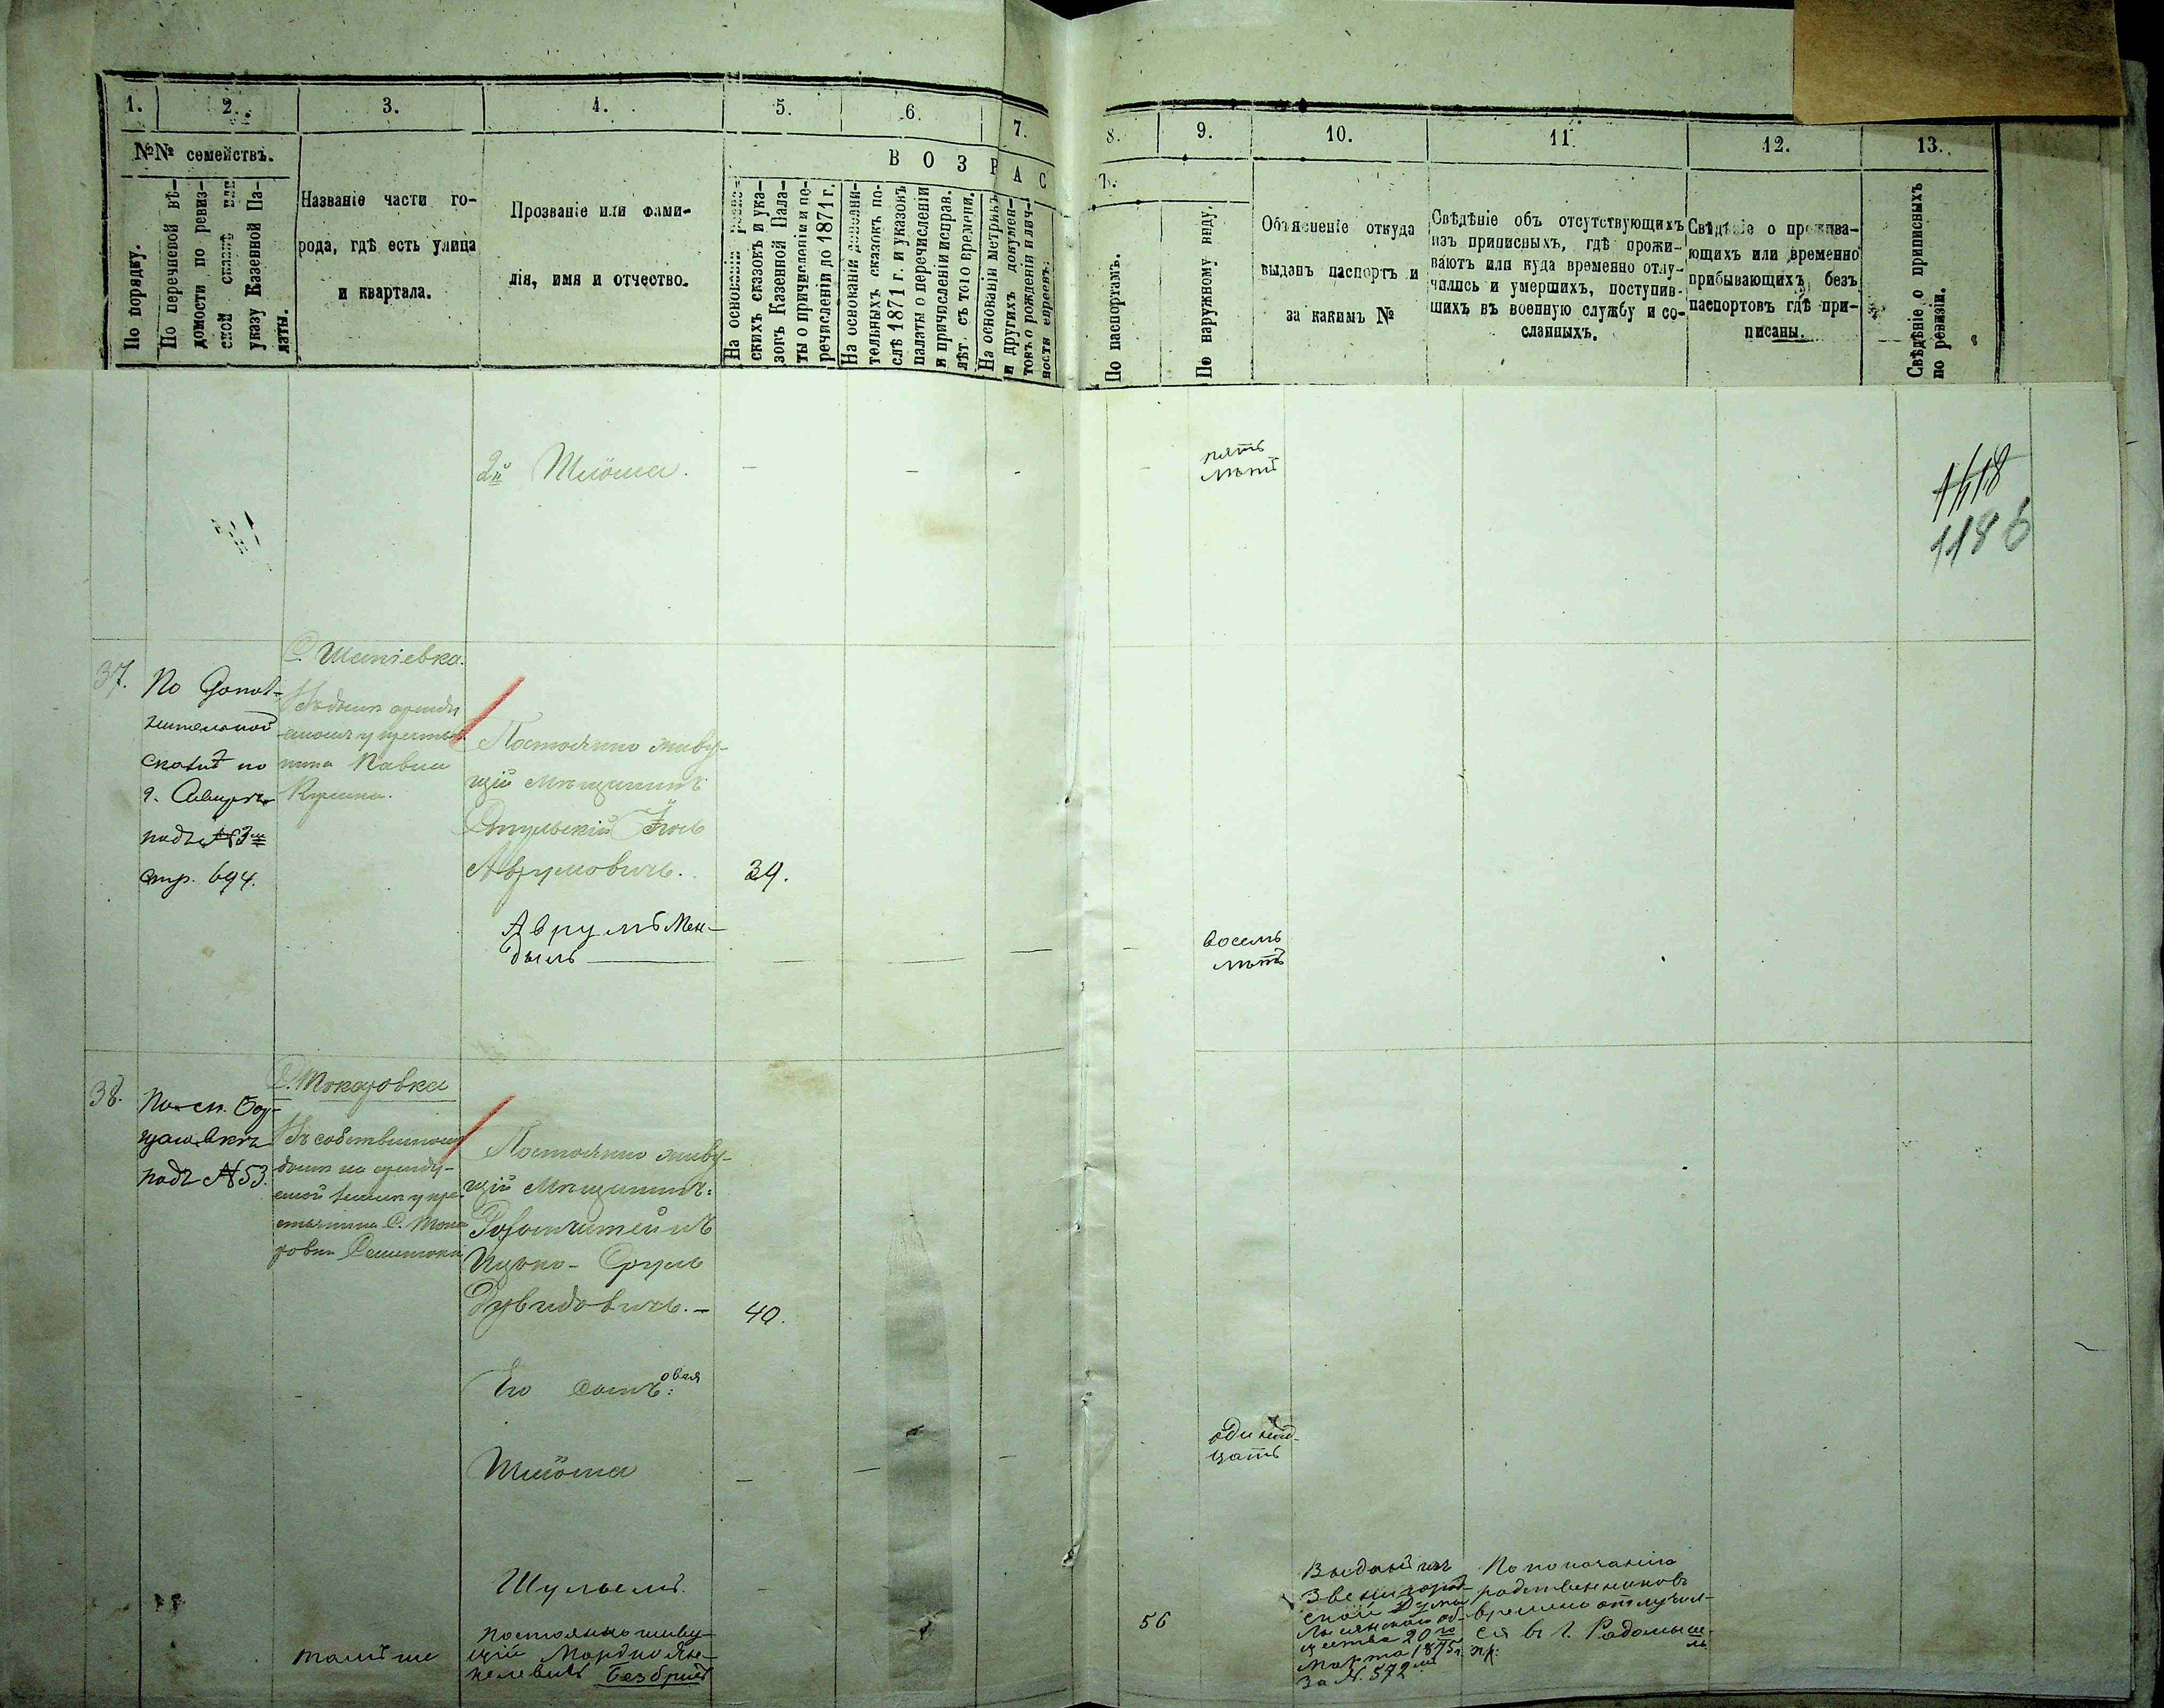 1.
2.
3.
4.
5.
6.
7.
8.
9.
10.
11.
12.
13.
№№ семействъ.
В О З Р А С
По порядку.
По перечневой вѣ-
домости по ревиз-
ской сказкѣ или
указу Казенной Па-
латы.
Названіе части го-
рода, гдѣ есть улица
и квартала.
Прозваніе или фами-
лія, имя и отчество.
На основаніи ревиз-
скихъ сказокъ и ука-
зовъ Казенной Пала-
ты о причисленіи и пе-
речисленіи до 1871 г.
На основаніи дополни-
тельныхъ сказокъ по-
слѣ 1871 г. и указовъ
палаты о перечисленіи
и причисленіи исправ.
лѣт. съ того времени.
На основаніи метрикъ
и другихъ докумен-
товъ о рожденіи и лич-
ности евреевъ.
7.
По паспортамъ.
По наружному виду.
Объясненіе откуда
выданъ паспортъ и
за какимъ №
Свѣдѣніе объ отсутствующихъ
изъ приписныхъ, гдѣ прожи-
ваютъ или куда временно отлу-
чились и умершихъ, поступив-
шихъ въ военную службу и со-
сланныхъ.
Свѣдѣніе о прожива-
ющихъ или временно
прибывающихъ безъ
паспортовъ гдѣ при-
писаны.
Свѣдѣніе о приписныхъ
по ревизіи.
2й Шлёма.
пять
лѣтъ
1186
37.
По Допол-
нительной
сказкѣ по
подъ №3мъ
стр. 694.
Павла
Постоянно живу-
щій мѣщанинъ
Аврумовичъ.
39.
Аврумъ Мен-
дыль
восемь
лѣтъ
38.
С. Токаровка
подъ №53.
Въ собственномъ
домѣ на аренду-
емой землѣ у кре-
стьянина С. Тока-
ровки
Постоянно живу-
щій Мѣщанинъ:
Ицько-Сруль
Дувидовичъ.-
40.
Его Сынъ:овья
Шлёма
одинад-
цать
Шулымъ.
такъ же
постоянно живу-
щій Мордко Ян-
келевичъ
56
Выданъ изъ
Звенигород-
ской Думы
Лысянской об-
щества 20го
Марта 1875г.
за №. 572мъ
По показанію
родственниковъ
временно отлучил-
ся въ г. Радомысль